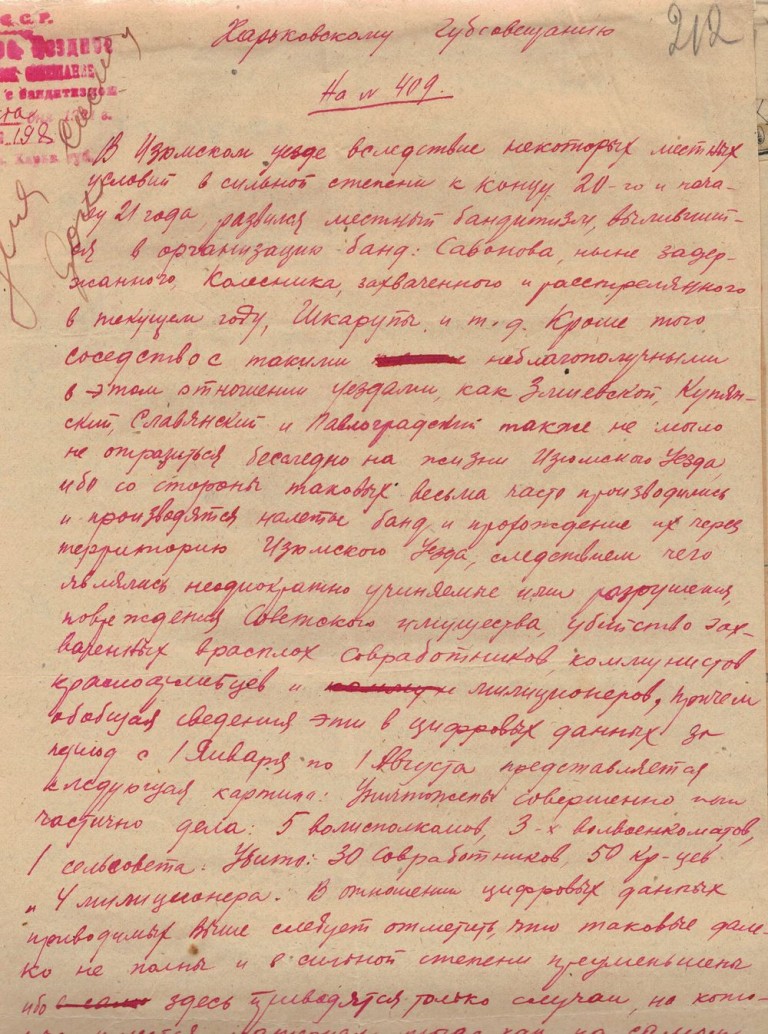 С. С. Р.
с бандитизмом
198
Харьковскому Губсовещанию
212
На № 409.
В Изюмском уезде вследствие некоторых местных
условий в сильной степени к концу 20-го и нача-
лу 21 года, развился местный бандитизм, вылившийт-
ся в организацию банд: Савонова, ныне задер-
жанного, Колесника, захваченного и расстрелянного
в текущем году, Шкарупы и т. д. Кроме того
соседство с такими неблагополучными
в этом отношении уездами, как Змиевской, Купян-
ский, Славянский и Павлоградский также не могло
не отразиться бесследно на жизни Изюмского Уезда,
ибо со стороны таковых весьма часто производились
и производятся налеты банд и прохождение их через
территорию Изюмского Уезда, следствием чего
являлись неоднократно учиняемые ими разрушения,
повреждения Советского имущества, убийство зах-
ваченных врасплох совработников, коммунистов
красноармейцев и милиционеров, причем
обобщая сведения эти в цифровых данных за
период с 1 Января по 1 Августа представляется
следующая картина: Уничтожены совершенно или
частично дела: 5 волисполкомов, 3-х волвоенкоматов,
1 сельсовета. Убито: 30 совработников, 50 кр-цев
" 4 милиционера. В отношении цифровых данных
приводимых выше следует отметить, что таковые дале-
ко не полны и в сильной степени преуменьшены
ибо здесь приводятся только случаи, на кото-